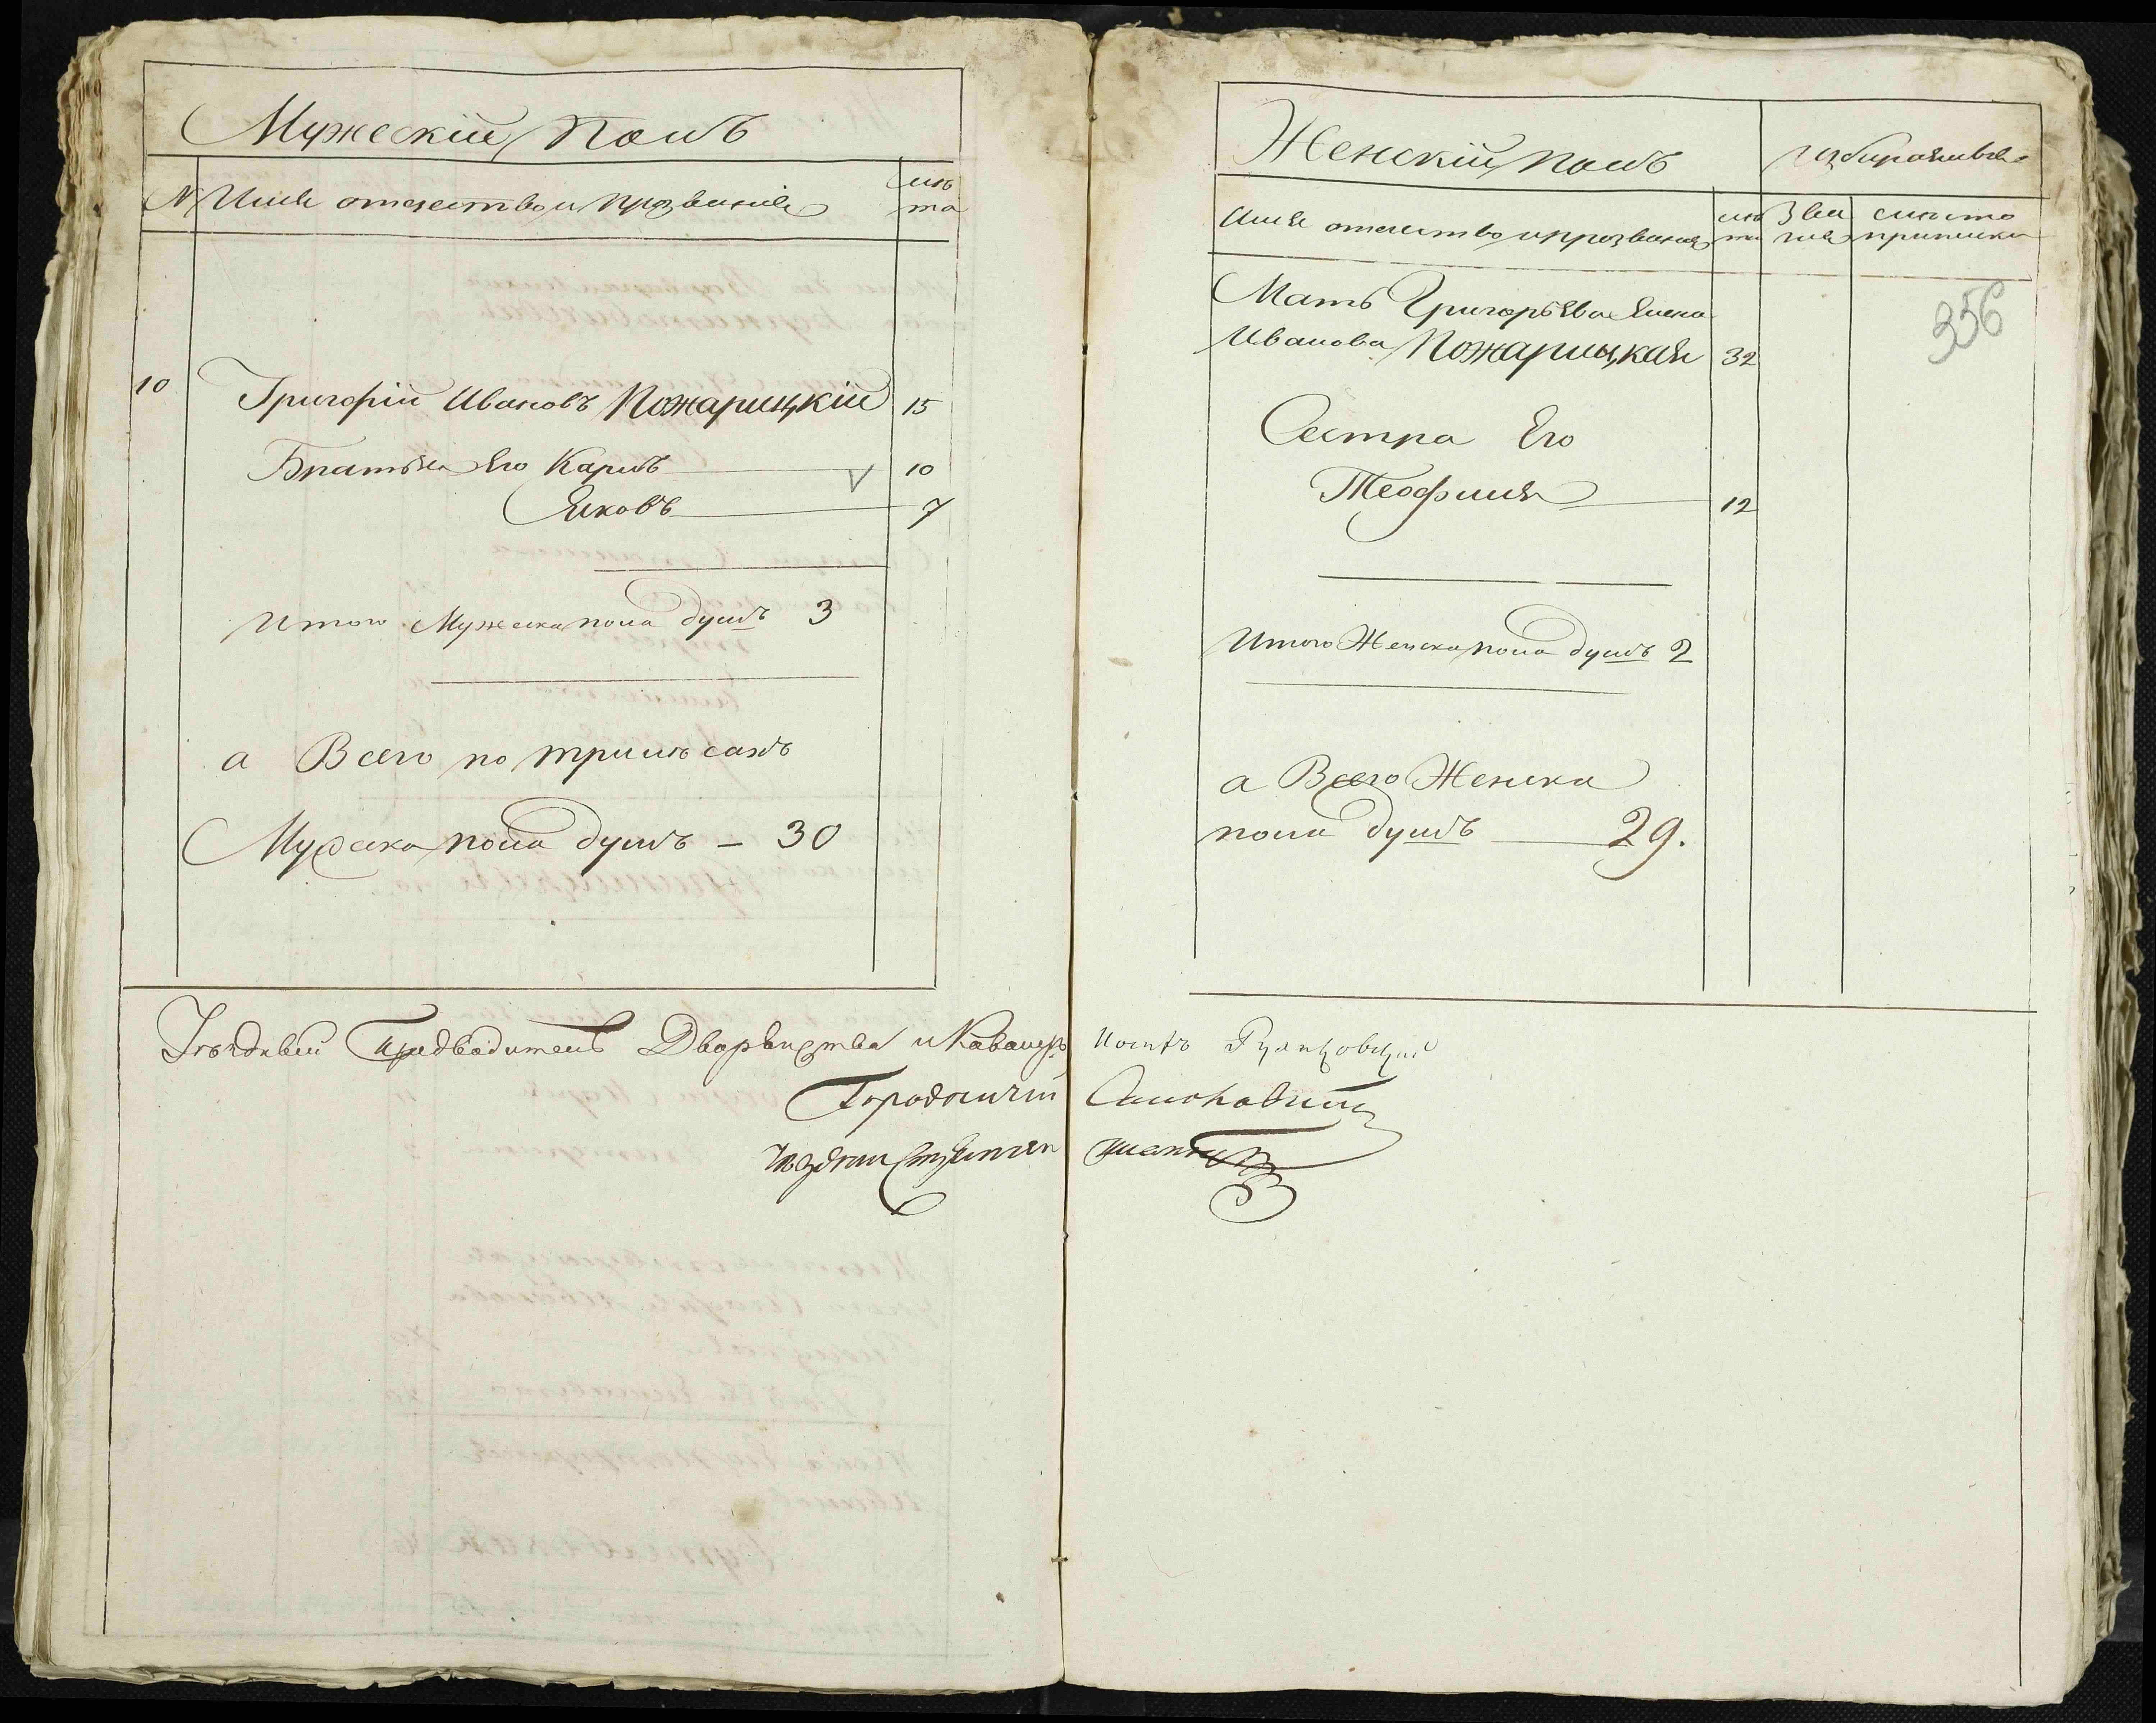 Мужескій Полъ
N Имя отечество и прозваніе лѣта
10 Григорій Ивановъ Пожарицкій 15
Братья Его Карлъ 10
Яковъ 7
Итого Мужеска пола душъ 3
а Всего по три мѣсахъ
Мужеска пола душъ – 30
Женскій Полъ
Имя отечество и прозваніе лѣта Зва ніе
356
Мать Григорьева Елена
Иванова Пожарицкая 32
Сестра Его
Теофиля 12
Итого Женска пола душъ 2
а Всего Женска
пола душъ 29.
Уѣздный Предводитель Дворянства и Кавалеръ
Городничій